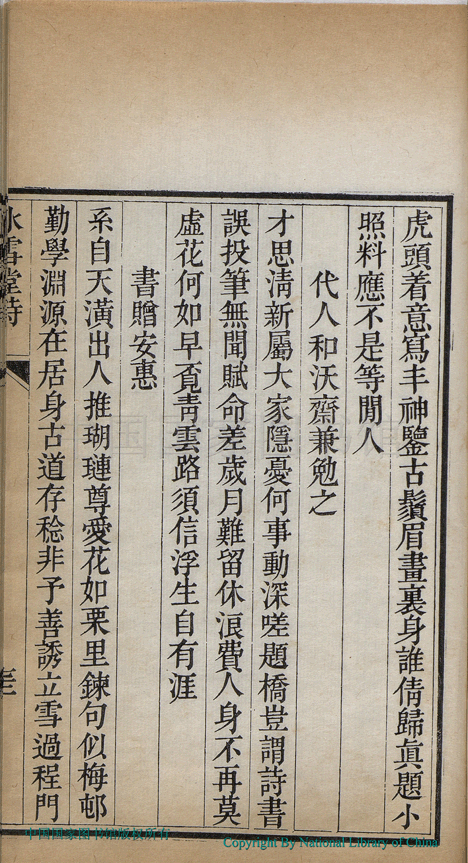 虎頭着意寫丰神鑒古鬚眉畫裏身誰倩歸眞題小
照料應不是等閒人
代人和沃齋兼勉之
才思清新屬大家隱憂何事動深嗟題橋豈謂詩書
誤投筆無聞賦命差歲月難留休浪費人身不再莫
虛花何如早覔青雲路須信浮生自有涯
書贈安惠
系自天潢出人推瑚璉尊愛花如栗里鍊句似梅邨
勤學淵源在居身古道存稔非予善誘立雪過程門
冰雪堂詩
中国国家图书馆版权所有
Copyright By National Library of China